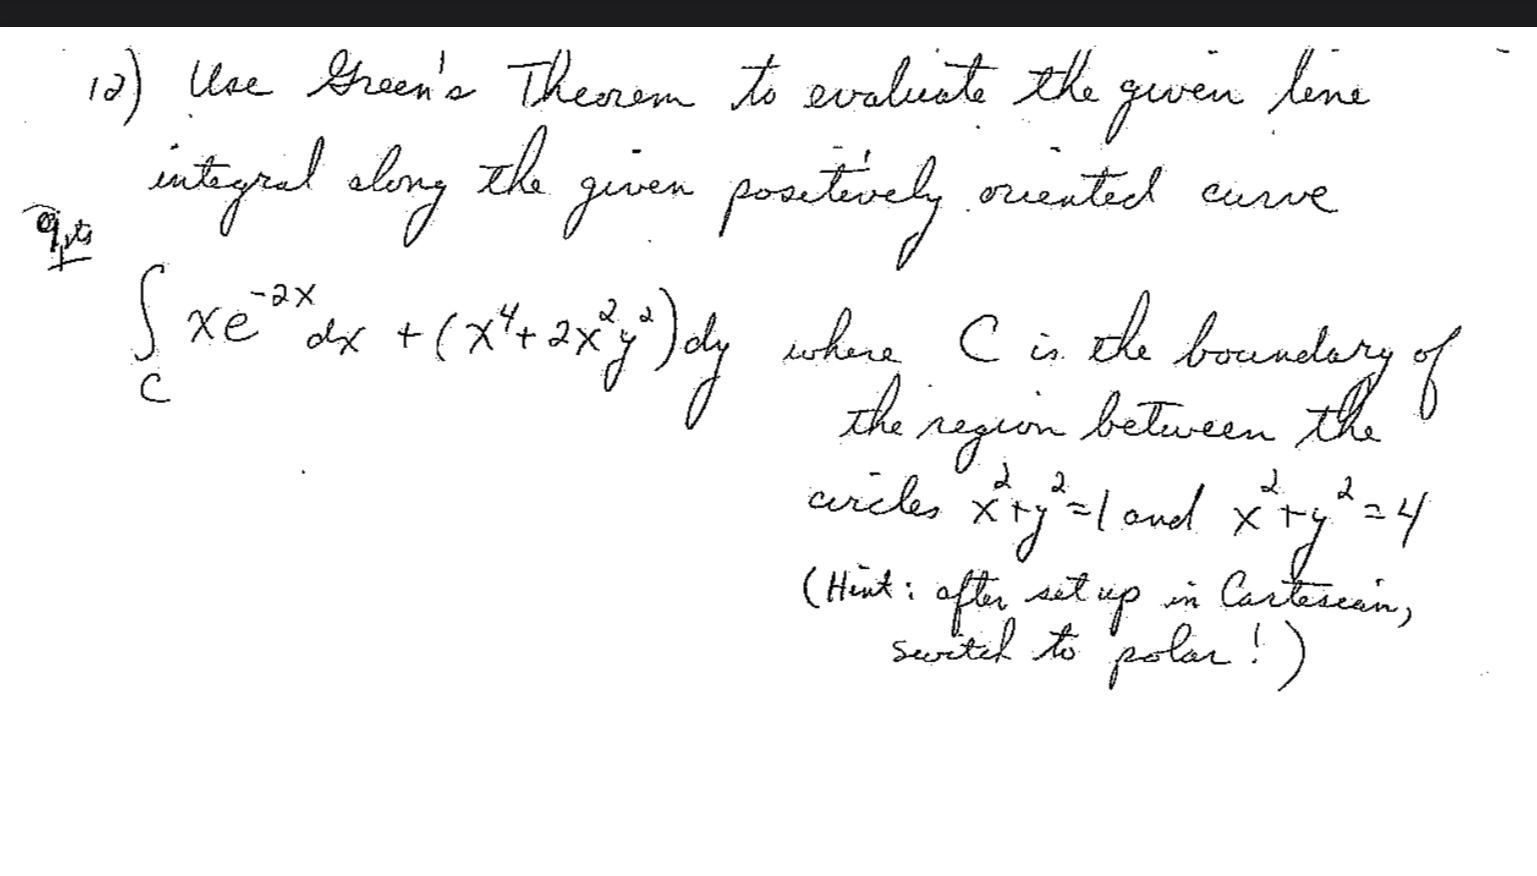 12) Use Green's Theorem to evaluate the given line
integral along the given positively oriented curve
9 pts
∫_C xe^{-2x} dx + (x^4 + 2x^2y^2) dy where C is the boundary of
the region between the
circles x^2+y^2=1 and x^2+y^2=4
(Hint: after set up in Cartesian,
switch to polar!)